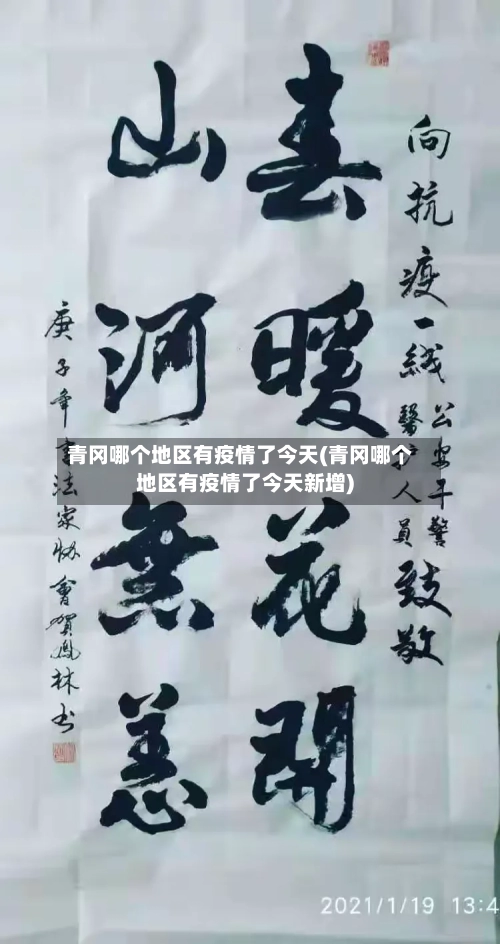 向抗疫一线公安干警
醫护人員致敬
春暖花開
山河無恙
庚子年書法家協會賀鳳林书
青冈哪个地区有疫情了今天(青冈哪个
地区有疫情了今天新增)
2021/1/19 13:4